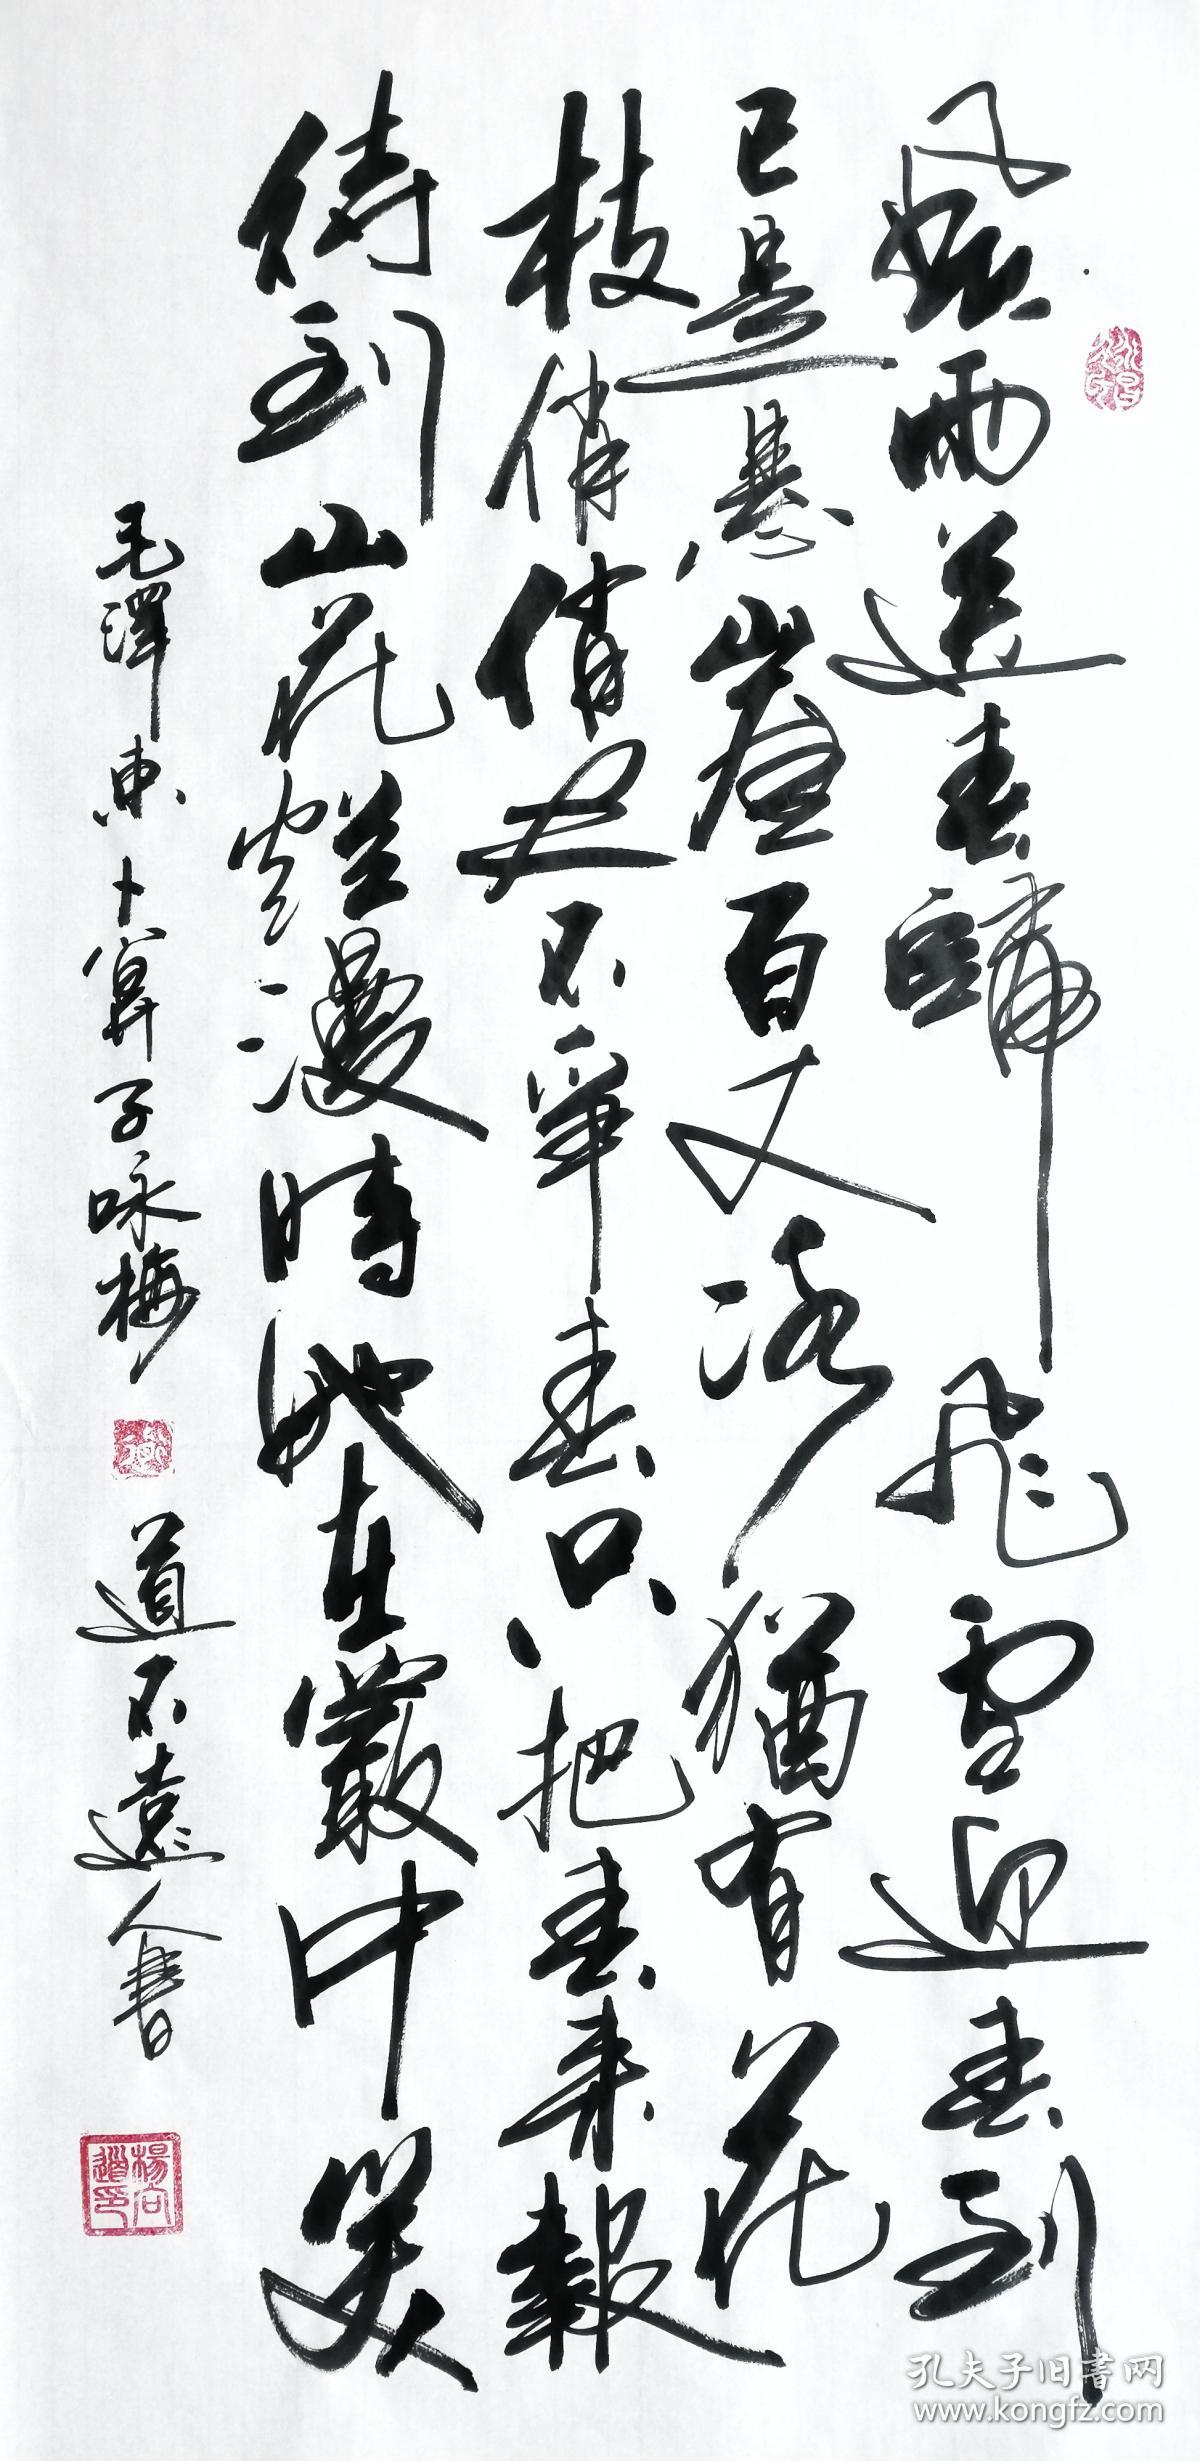 風雨送春歸飛雪迎春到
已是懸崖百丈冰猶有花
枝俏俏也不爭春只把春來報
待到山花爛漫時她在叢中笑
毛澤東卜算子咏梅
道不遠人書
楊向道印
孔夫子旧書网
www.kongfz.com